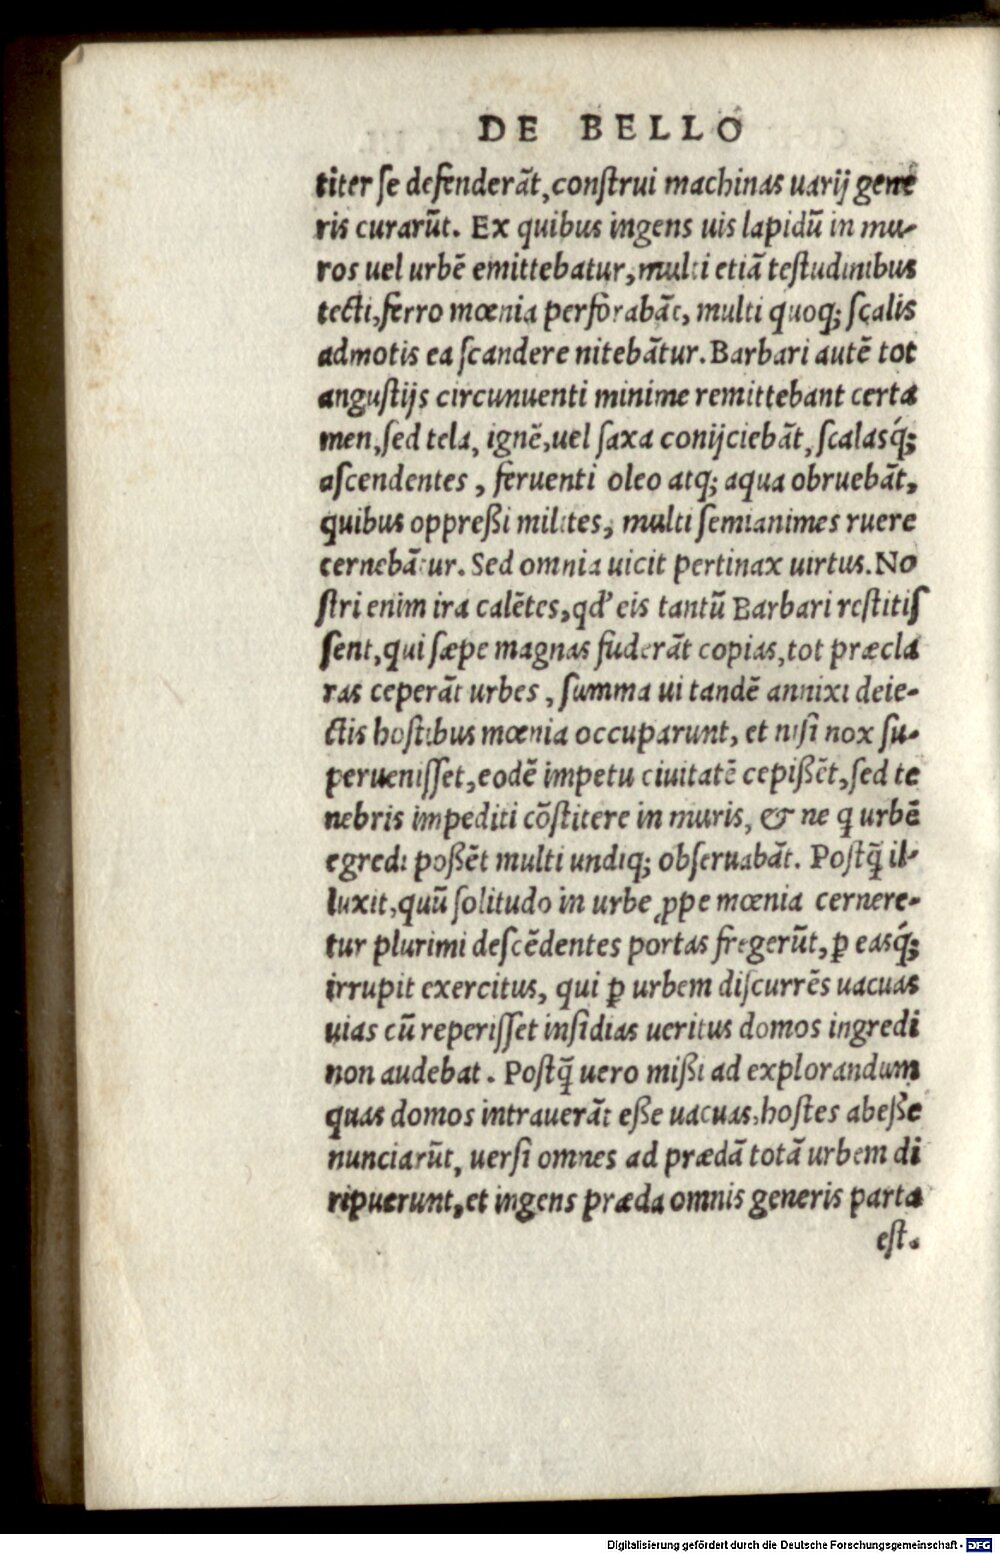 DE BELLO
titer ſe defenderãt, conſtrui machinas uarij gene
ris curarũt. Ex quibus ingens uis lapidũ in mu-
ros uel urbẽ emittebatur, multi etiã teſtudinibus
tecti, ferro mœnia perforabãt, multi quoq; ſcalis
admotis ea ſcandere nitebãtur. Barbari autẽ tot
anguſtijs circunuenti minime remittebant certa
men, ſed tela, ignẽ, uel ſaxa conijciebãt, ſcalasq́;
aſcendentes, feruenti oleo atq; aqua obruebãt,
quibus oppreßi milites, multi ſemianimes ruere
cernebãtur. Sed omnia uicit pertinax uirtus. No
ſtri enim ira calẽtes, qd' eis tantũ Barbari reſtitiſ
ſent, qui ſæpe magnas fuderãt copias, tot præcla
ras ceperãt urbes, ſumma ui tandẽ annixi deie-
ctis hoſtibus mœnia occuparunt, et niſi nox ſu-
perueniſſet, eodẽ impetu ciuitatẽ cepißẽt, ſed te
nebris impediti cõſtitere in muris, & ne q urbẽ
egredi poßẽt multi undiq; obſeruabãt. Poſtq̃ il-
luxit, quũ ſolitudo in urbe ꝓpe mœnia cernere-
tur plurimi deſcẽdentes portas fregerũt, ꝑ easq́;
irrupit exercitus, qui ꝑ urbem diſcurrẽs uacuas
uias cũ reperiſſet inſidias ueritus domos ingredi
non audebat. Poſtq̃ uero mißi ad explorandum
quas domos intrauerãt eße uacuas, hoſtes abeße
nunciarũt, uerſi omnes ad prædã totã urbem di
ripuerunt, et ingens præda omnis generis parta
eſt.
Digitalisierung gefördert durch die Deutsche Forschungsgemeinschaft - DFG